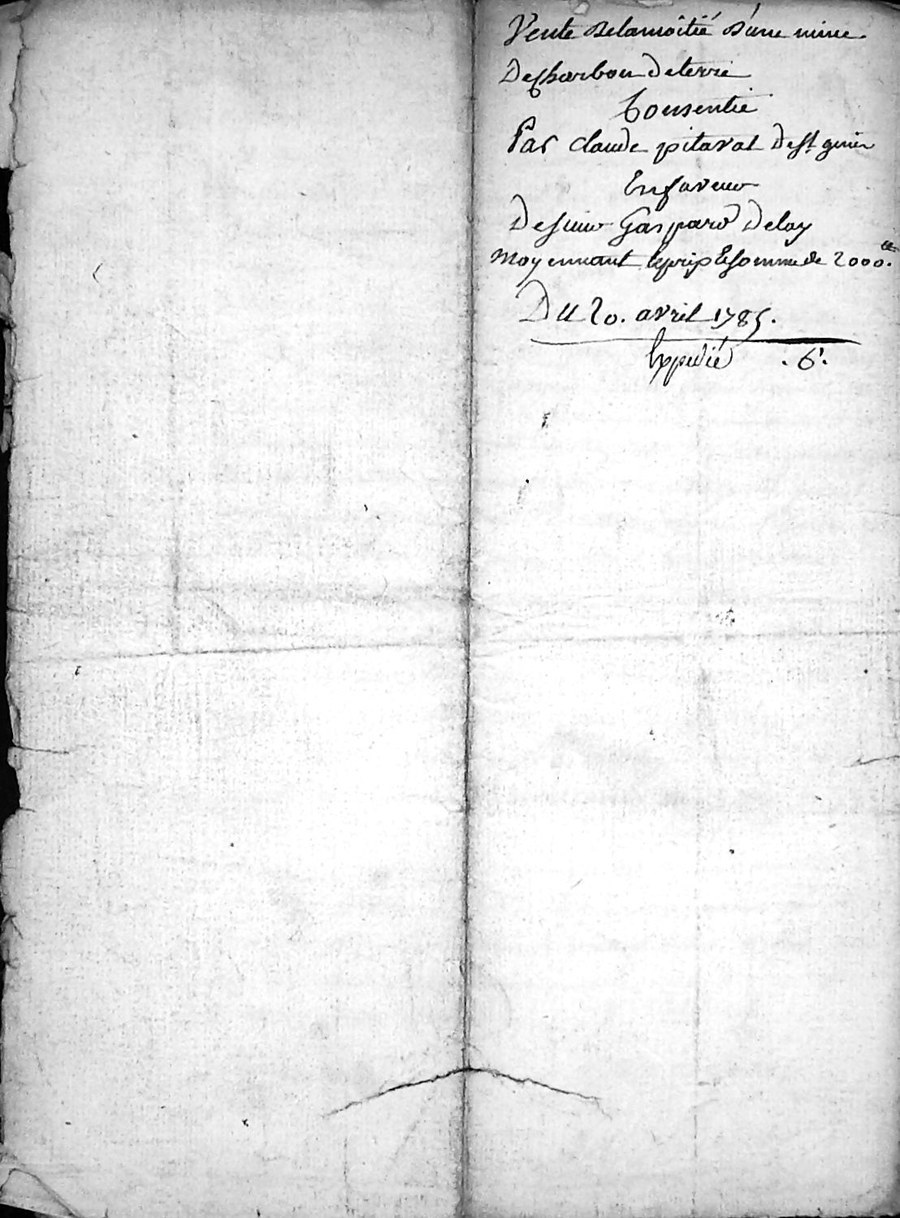 Vente delamoitié d'une mine
De Charbon de terre
Consentie
Par claude pitaval De St genis
En faveur
De sieur Gaspard Deloy
Moyennant le prix Et somme de 2000.
Du 20. avril 1785.
Expedié . 6 .